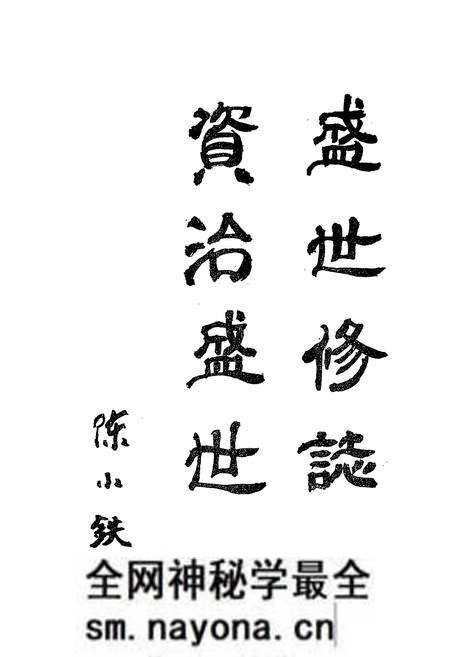 盛世修誌
資治盛世
陈小鉄
全网神秘学最全
sm.nayona.cn